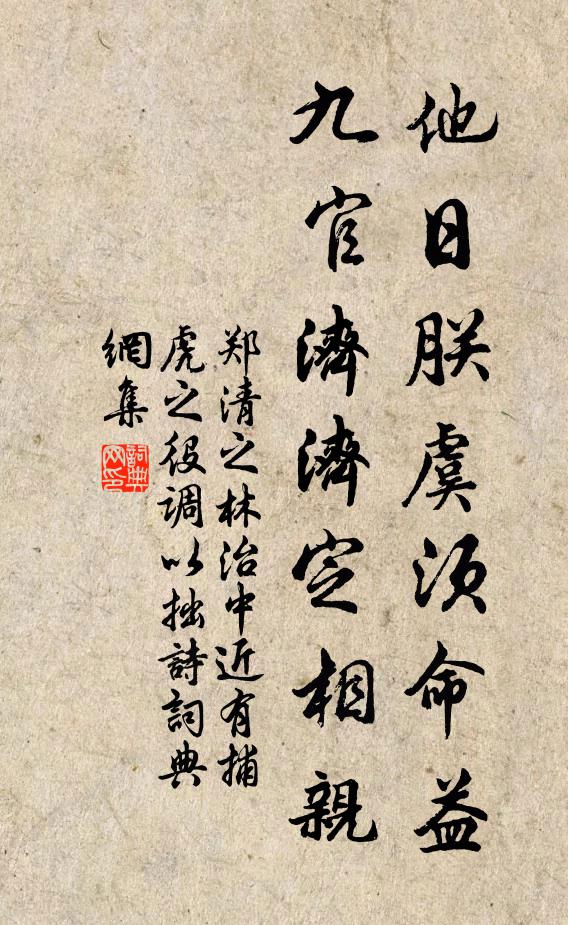 他日朕虞須命益
九官濟濟定相親
郑清之林治中近有捕
虎之役調以拙詩詞典
網集
詞典網印